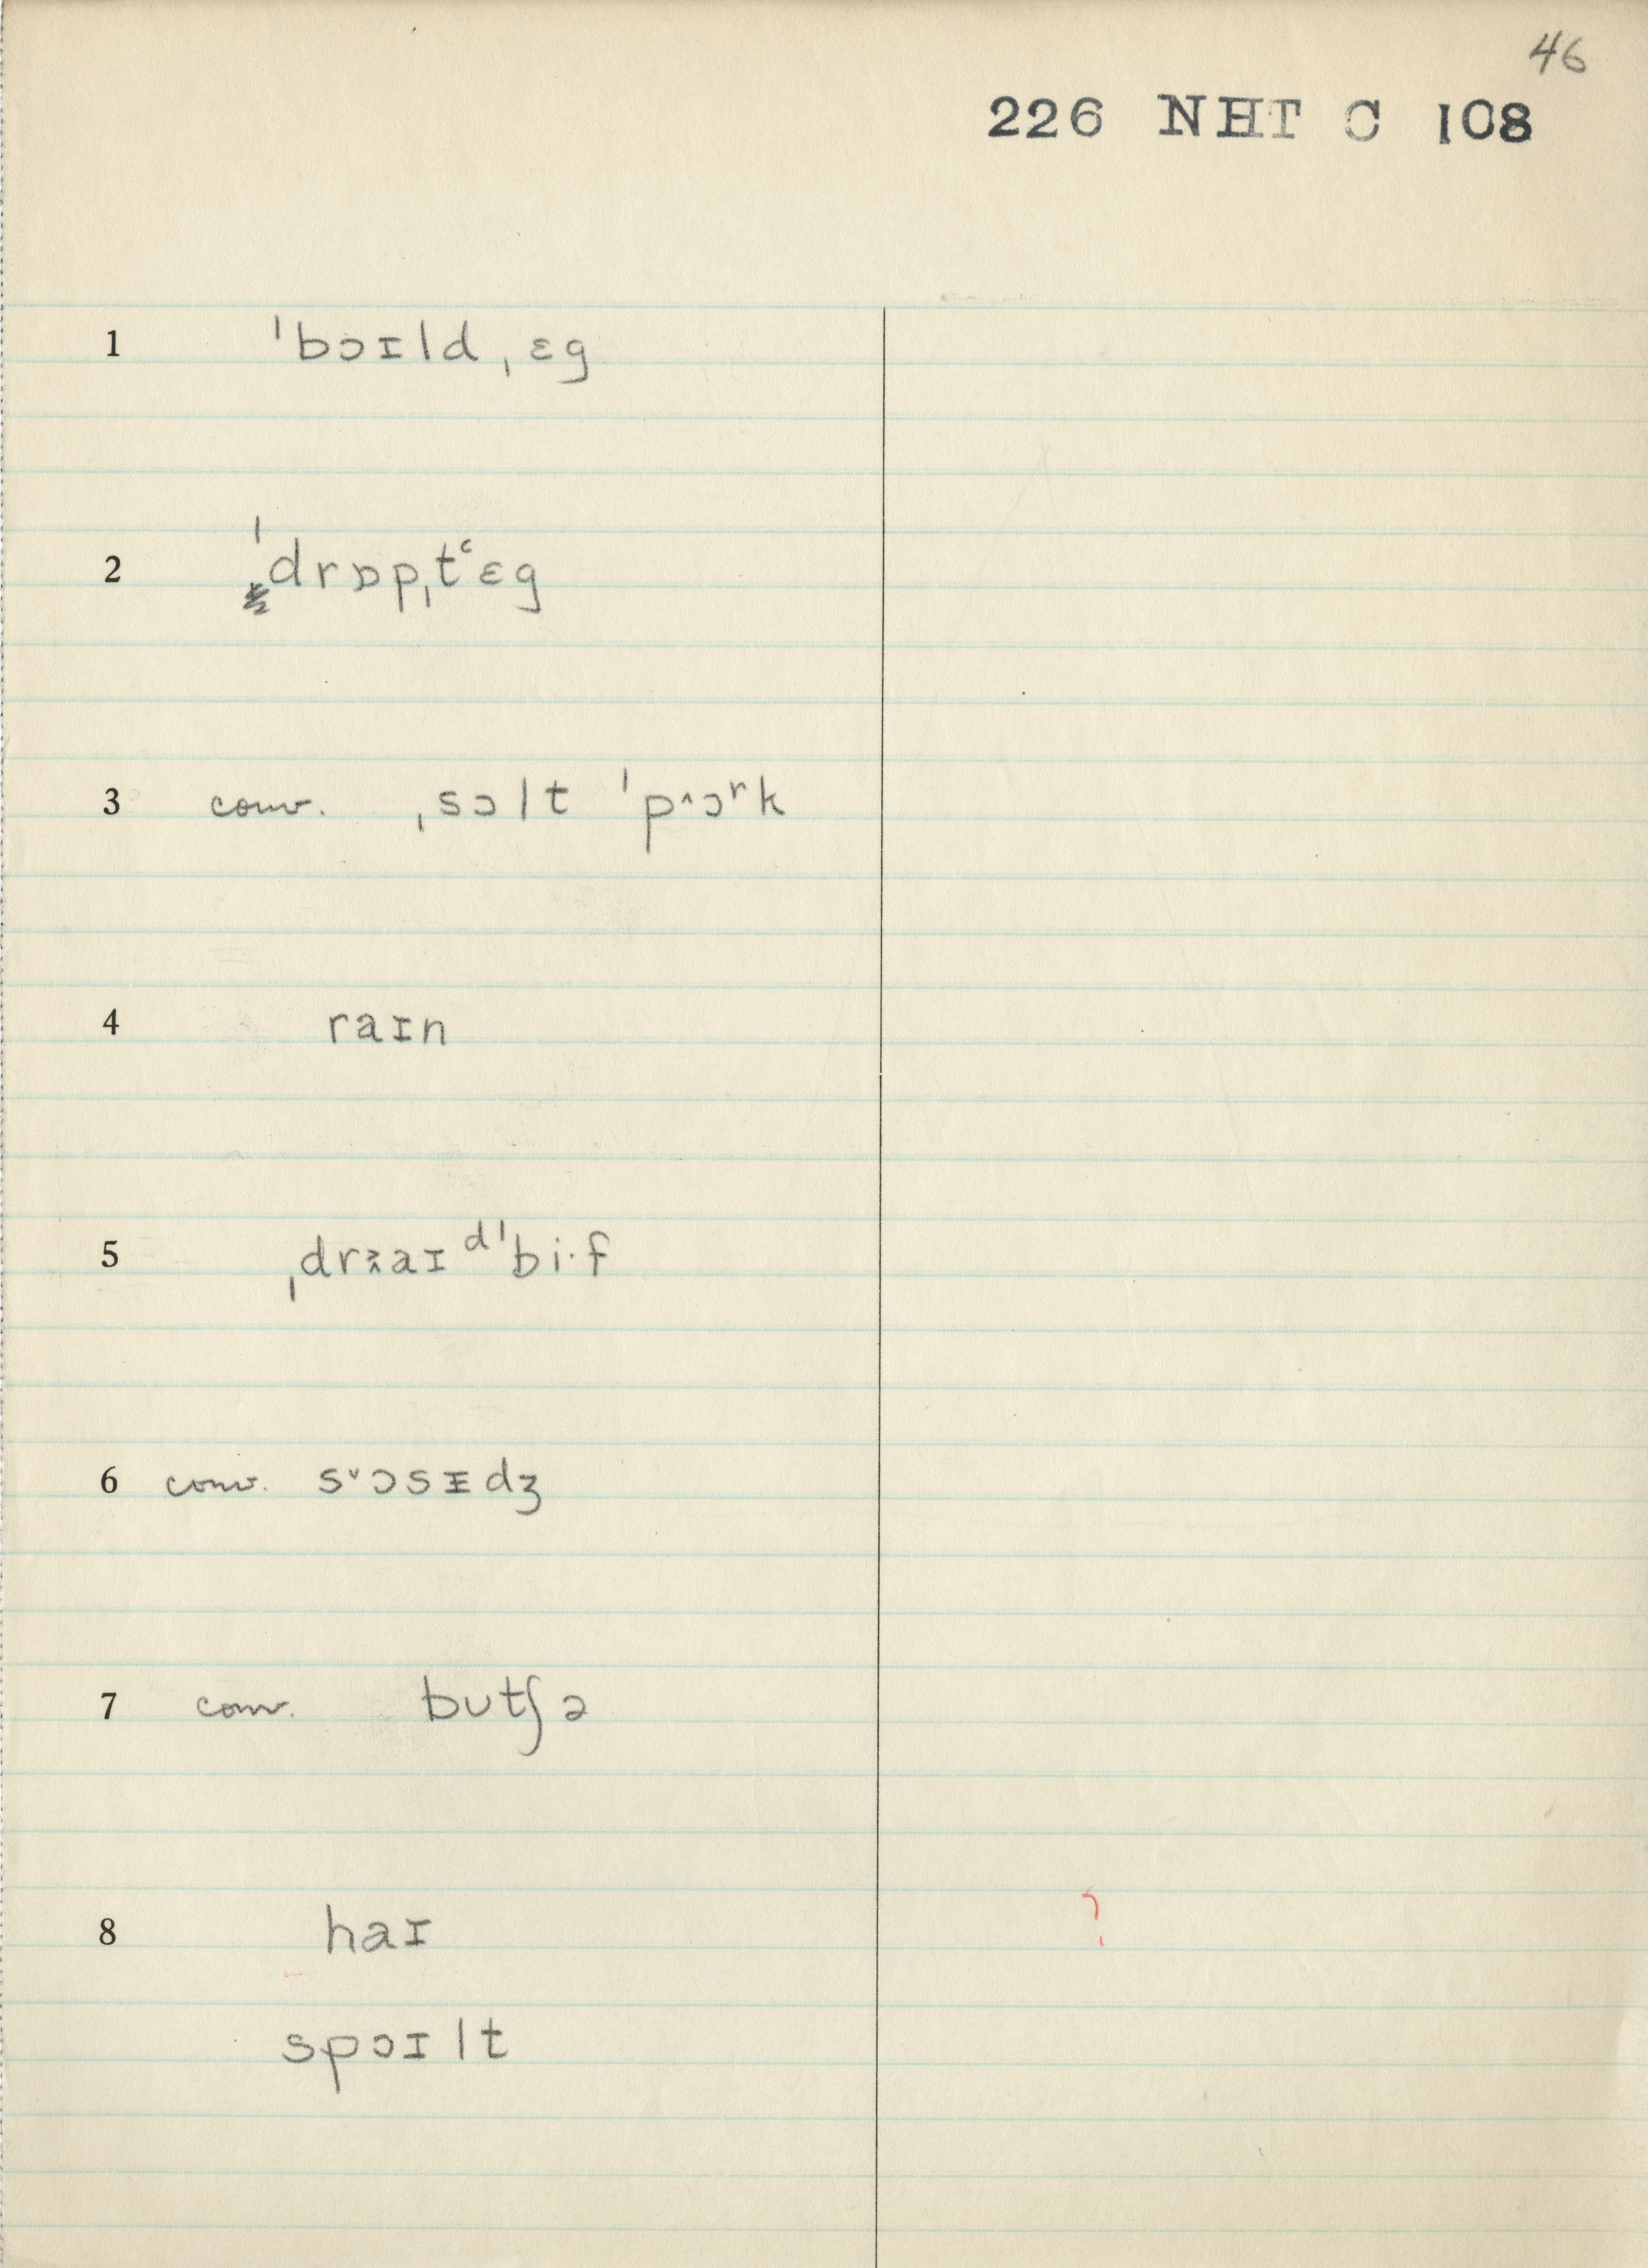 46
226 NHT C 108
1 ˈbɔɪld ˌɛg
2 ˈdrɒpˌtʻɛg
3 conv. ˌsɔlt ˈp˄ɔʳk
4 raɪn
5 ˌdraɪ ᵈˈbi·f
6 conv. s˅ɔsᵻdʒ
7 conv. bʊtʃə
8 haɪ ?
spɔɪlt